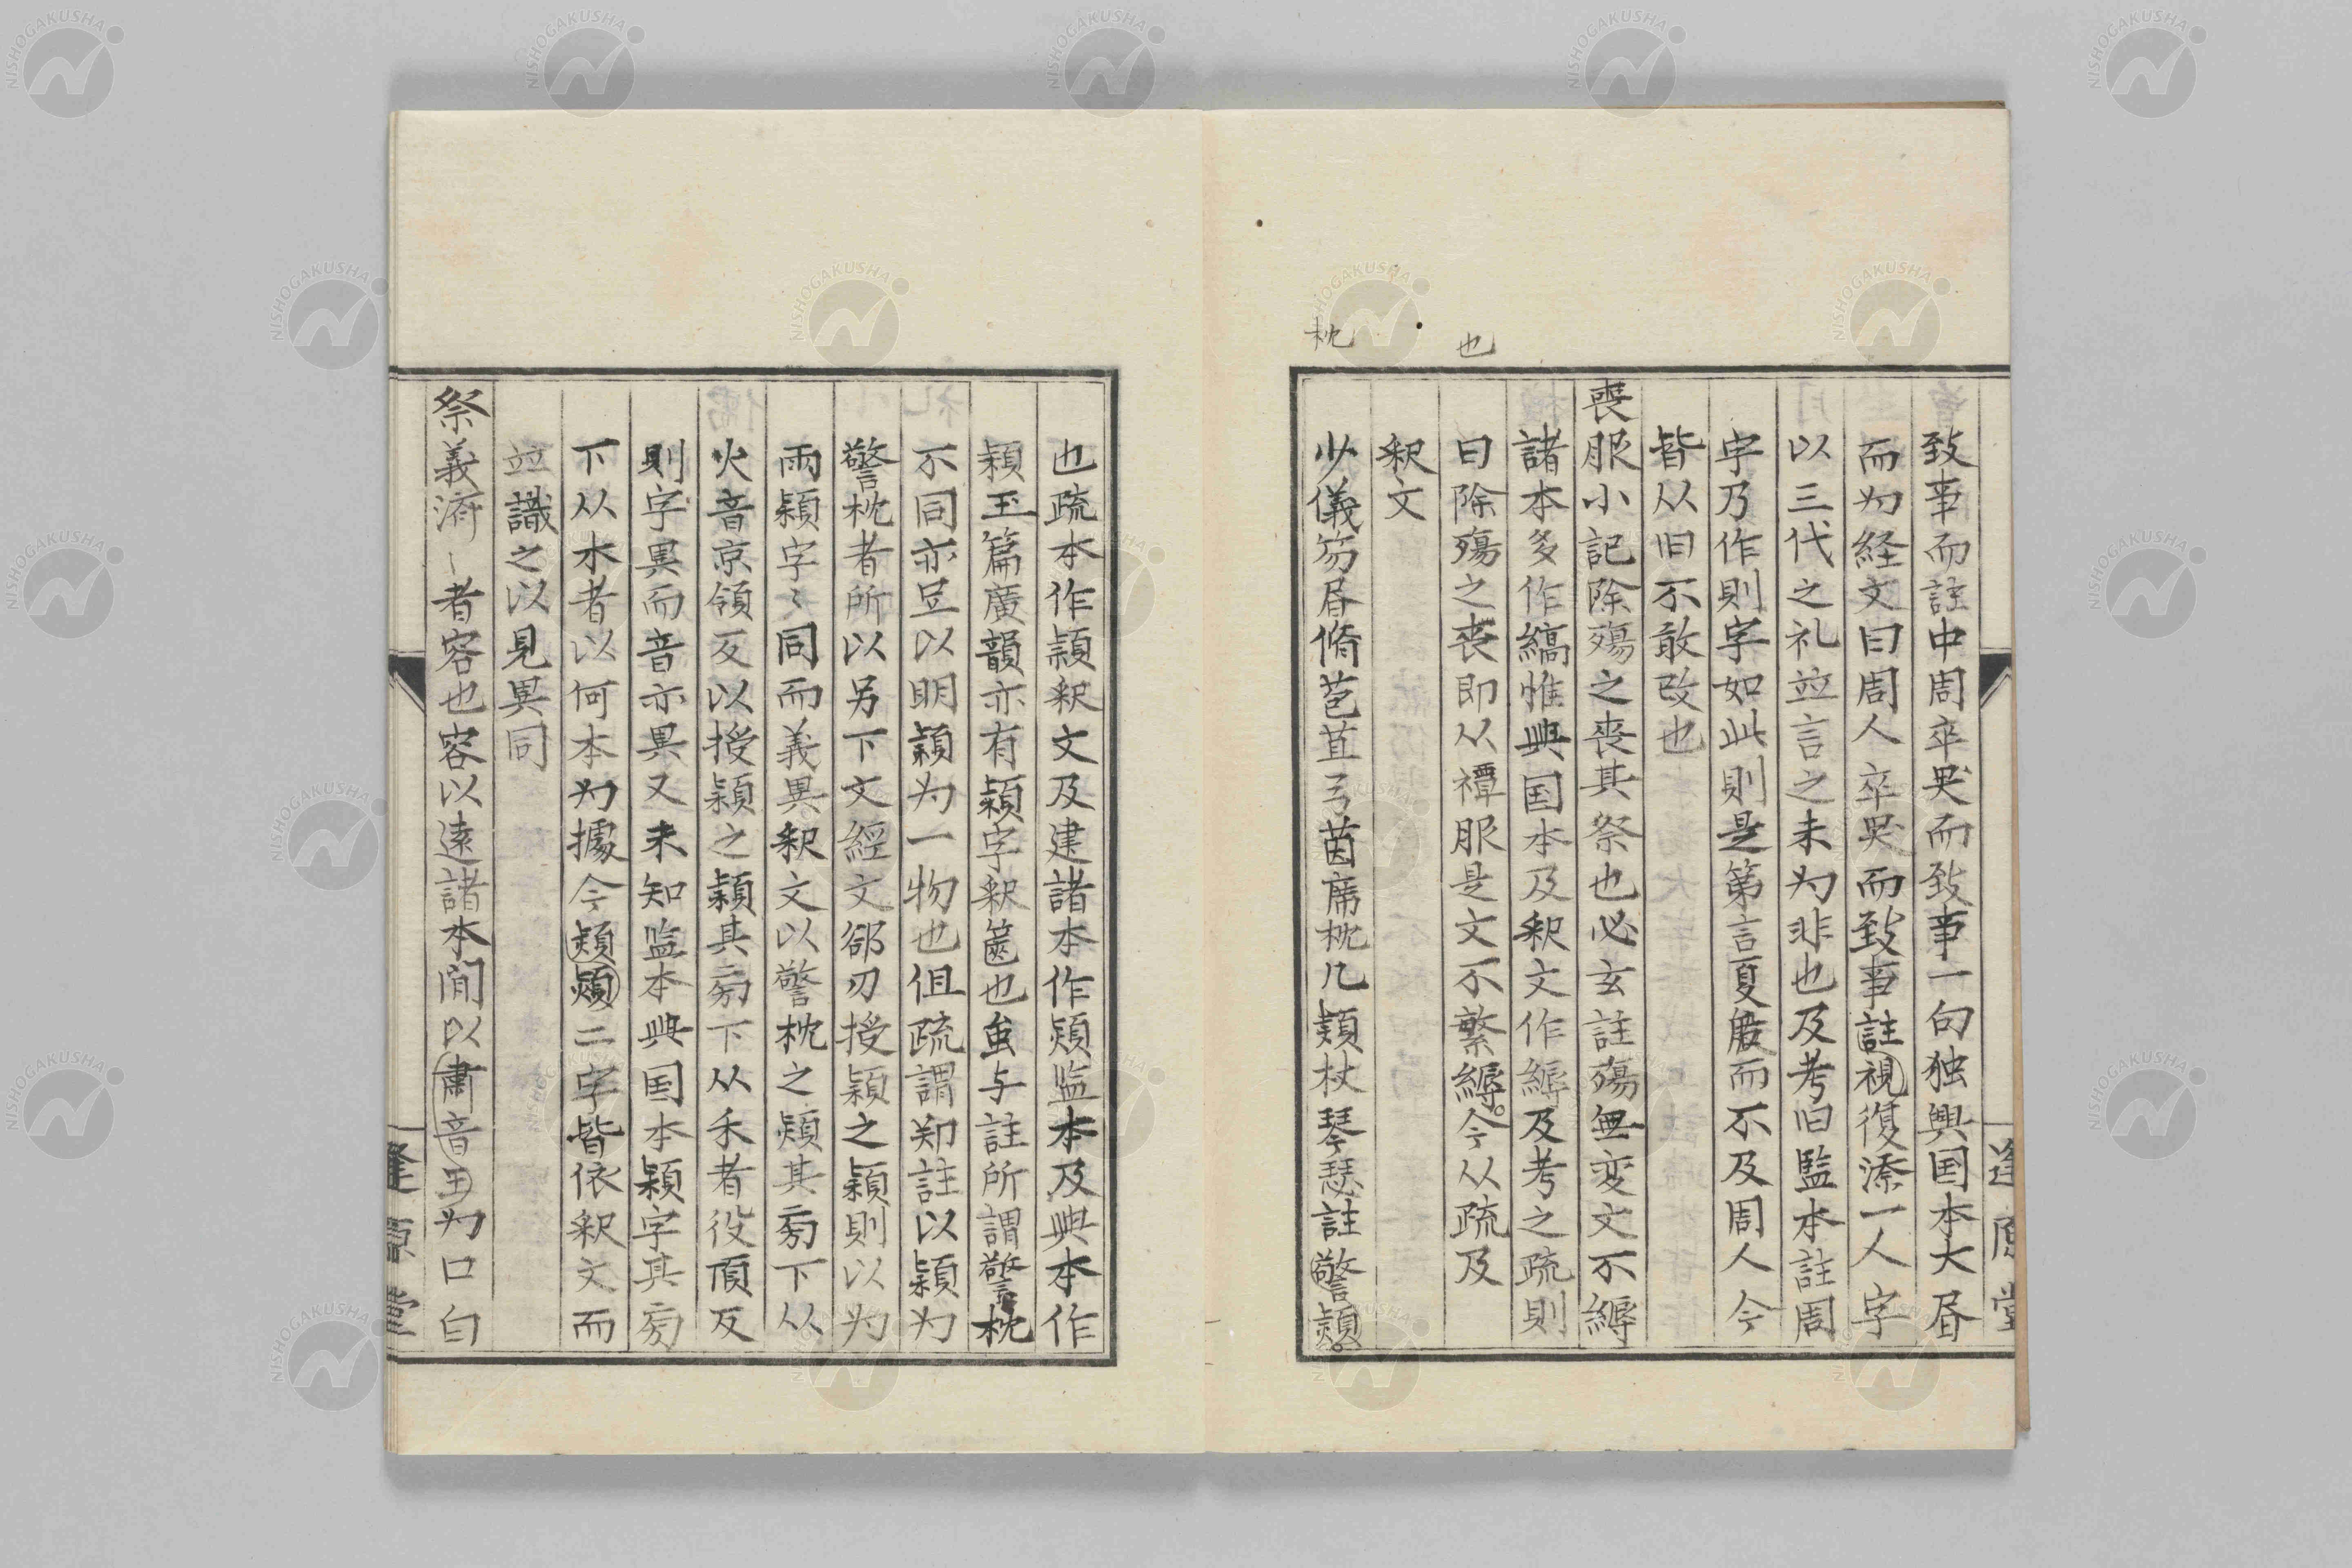 致事而註中周卒哭而致事一句独興国本大昏
而为経文曰周人卒哭而致事註視復添一人字
以三代之礼竝言之未为非也及考旧監本註周
字乃作則字如此則是第言夏殷而不及周人今
皆从旧不敢改也
喪服小記除殤之喪其祭也必玄註殤無変文不縟
諸本多作縞惟興国本及釈文作縟及考之疏則
曰除殤之喪即从禫服是文不繁縟今从疏及
也
釈文
少儀笏昏脩苞苴弓茵席枕几熲杖琴瑟註警熲
枕
也疏本作潁釈文及建諸本作熲監本及興本作
穎玉篇廣韻亦有穎字釈篋也虽与註所謂警枕
不同亦足以明穎为一物也但疏謂郑註以穎为
警枕者所以另下文經文郤刃授穎之穎則以为
兩穎字〻同而義異釈文以警枕之熲其旁下从
火音京領反以授穎之穎其旁下从禾者役頂反
則字異而音亦異又未知監本興国本穎字其旁
下从水者以何本为據今熲熲二字皆依釈文而
竝識之以見異同
祭義済〻者容也容以遠諸本閒以肅音王为口白
逢原堂
逢原堂
NISHOGAKUSHA